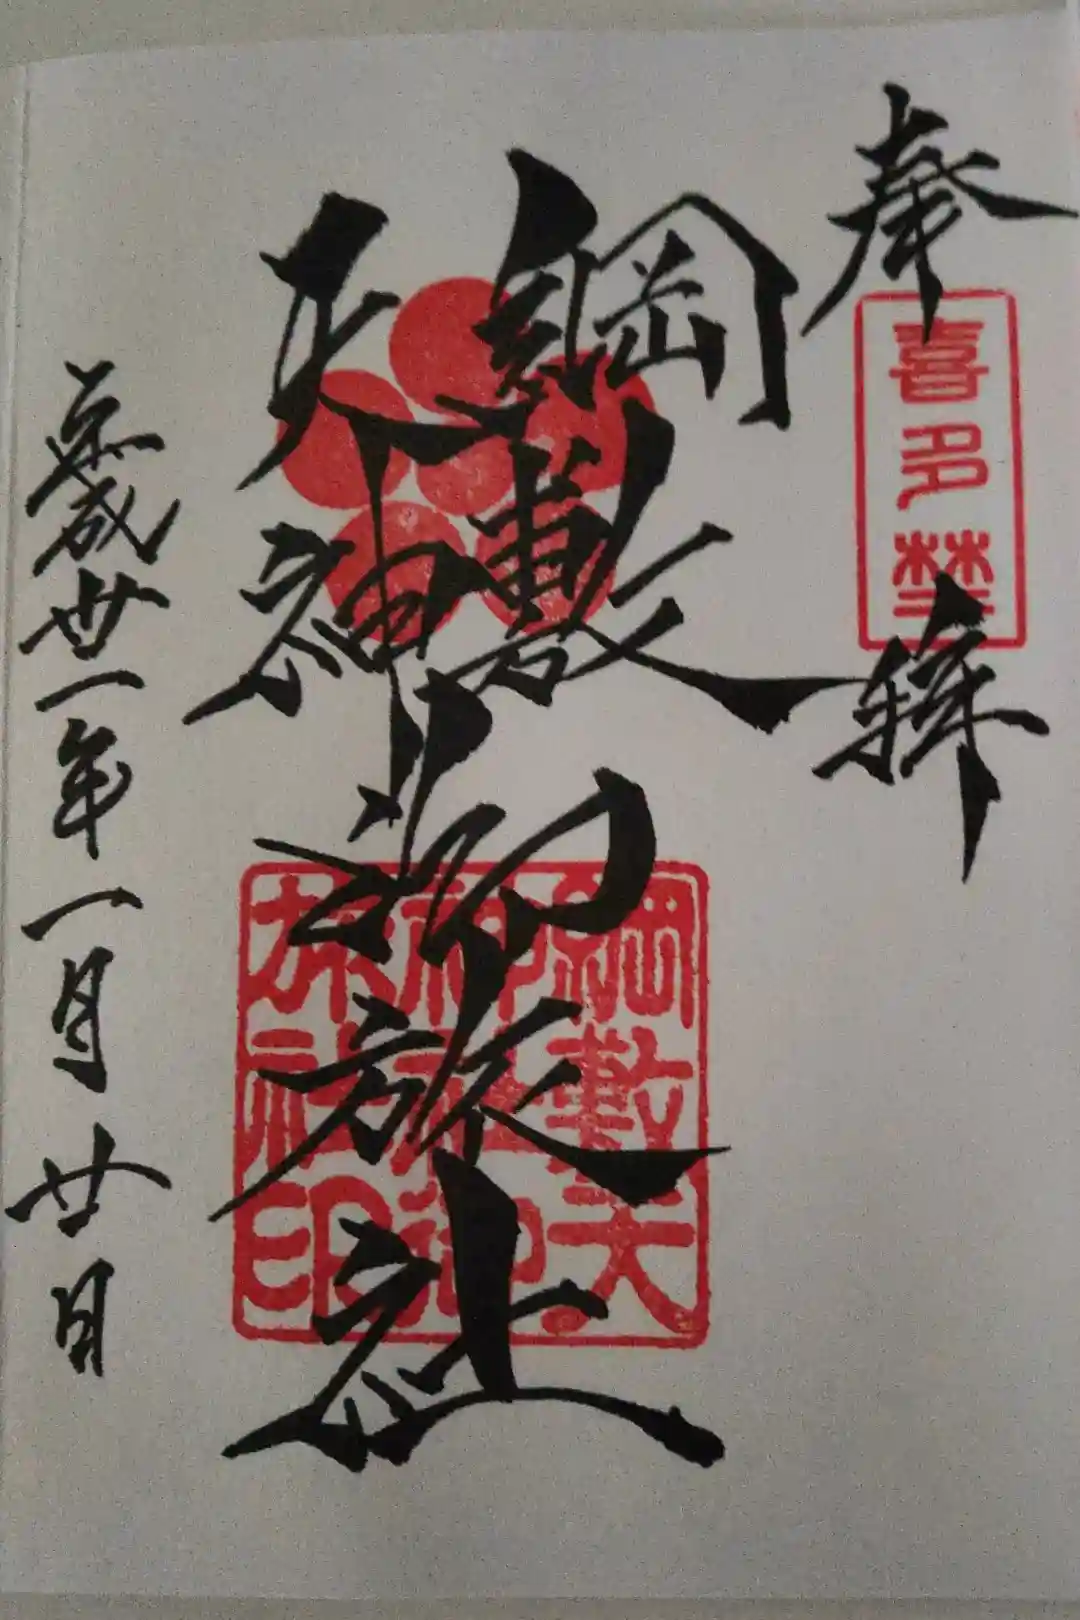 奉拝
喜多埜
綱敷
天神
御旅社
綱敷天
神社御
旅社印
平成丗一年一月廿日